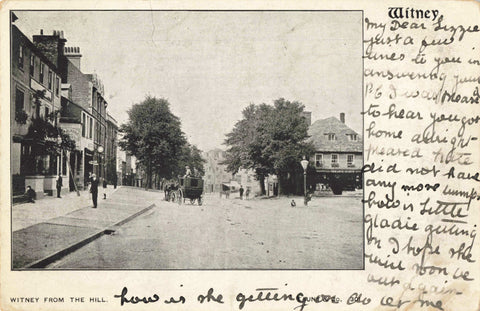 Witney
My Dear Lizzie
just a few
lines to you in
answering your
P C I was please
to hear you got
home alright
pleared Kate
did not have
any more bumps
how is little
Gladie getting
on I hope she
will soon be
out again
WITNEY FROM THE HILL.
how is she getting on do let me